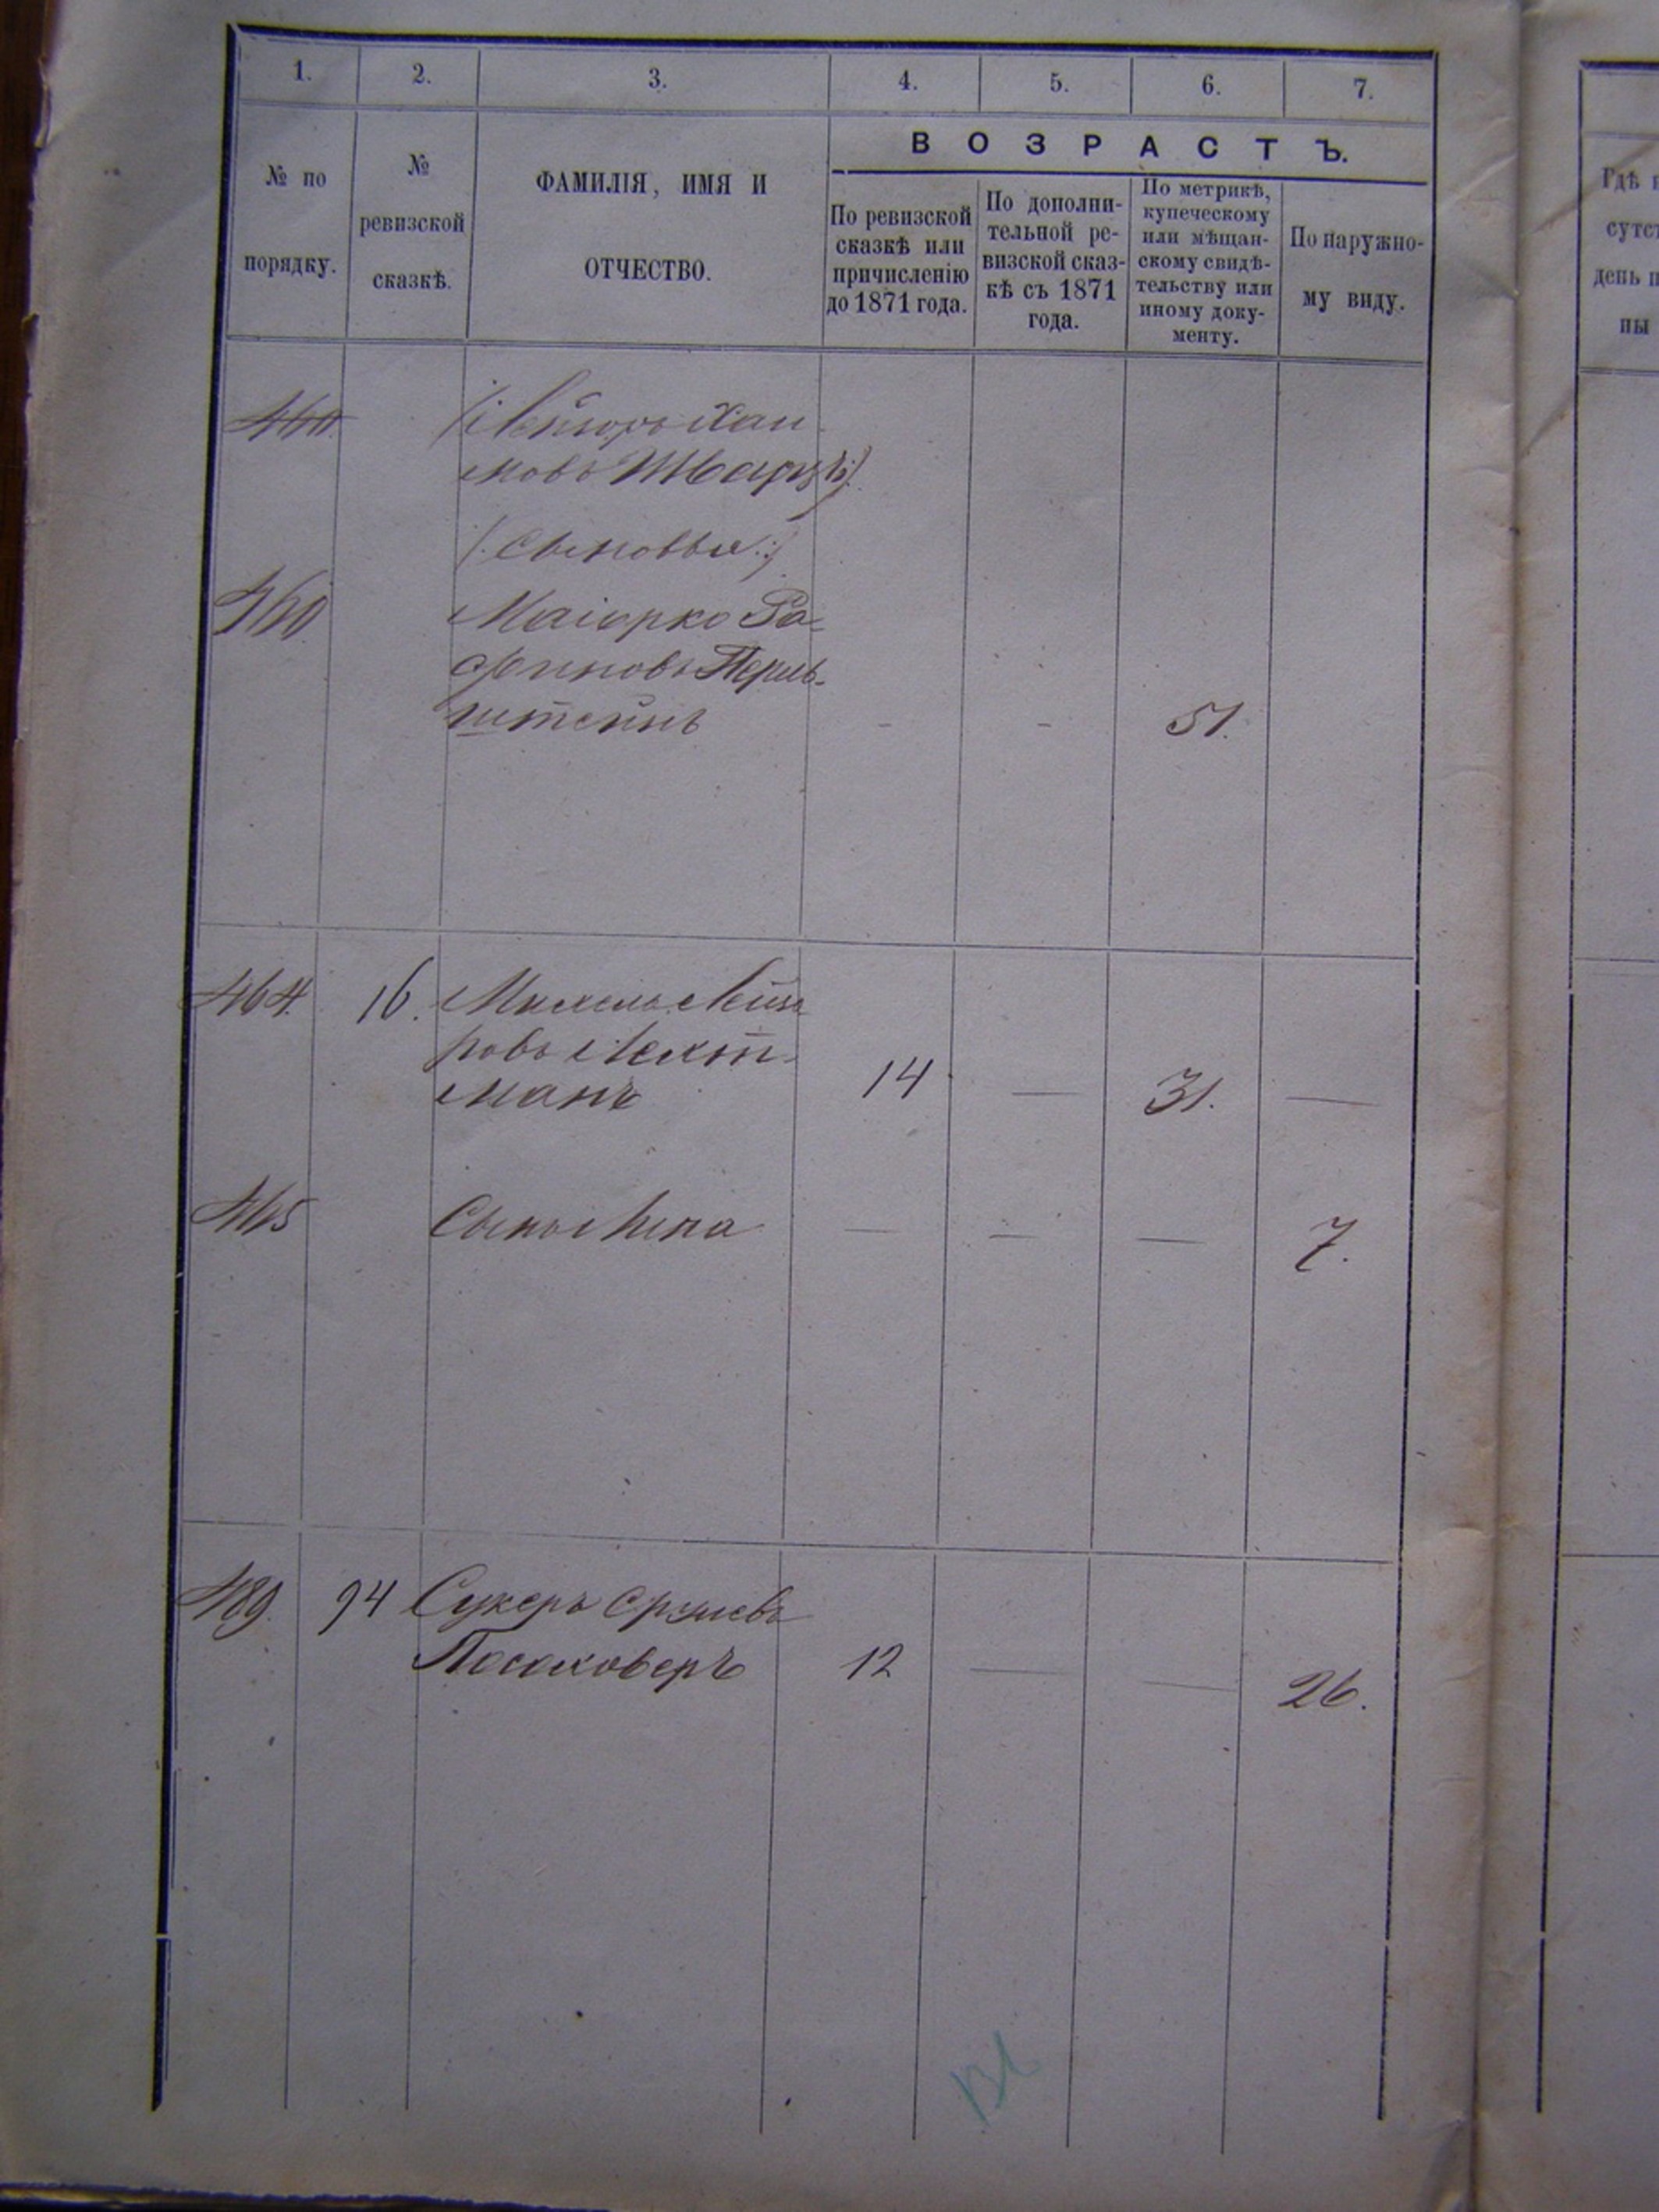 1. 2. 3. 4. 5. 6. 7.
№ по порядку.
№ ревизской сказкѣ.
ФАМИЛІЯ, ИМЯ И
ОТЧЕСТВО.
ВОЗРАСТЪ.
По ревизской
сказкѣ или
причисленію
до 1871 года.
По дополни-
тельной ре-
визской сказ-
кѣ съ 1871
года.
По метрикѣ,
купеческому
или мѣщан-
скому свидѣ-
тельству или
иному доку-
менту.
По наружно-
му виду.
Гдѣ
сутст
день
ны
мовъ Шварцъ
Сыновья
460 Маіорко Ра-
финовъ Перль-
штейнъ - - 51.
464. 16. Михель Лейзе
ровъ Лехт-
манъ 14 — 31. —
465 Сынъ Липа — — — 7.
489. 94 Сукеръ Срулевъ
Посаховеръ 12 — — 26.